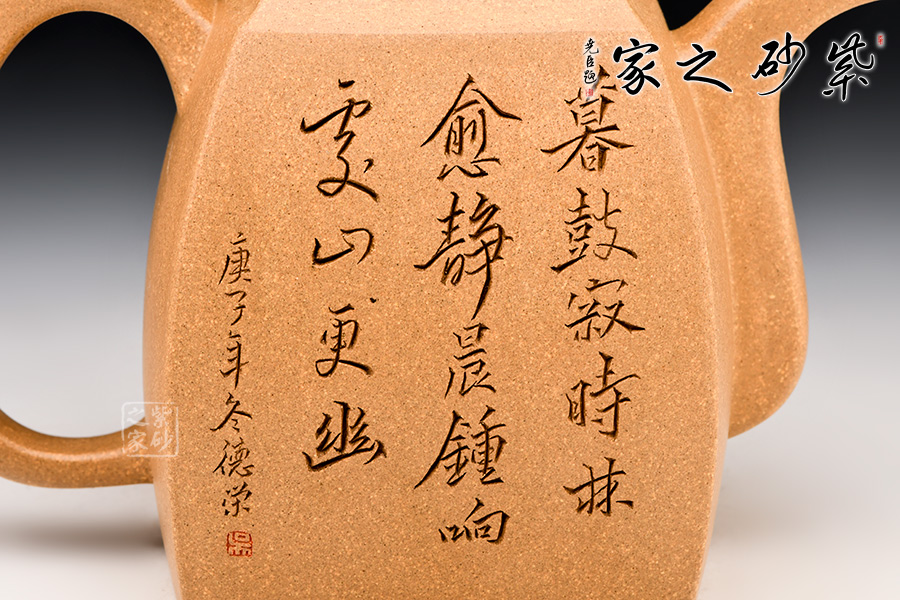 紫砂之家
尧臣題
暮鼓寂時林
愈静晨鍾响
處山更幽
庚子年冬德荣
紫砂之家